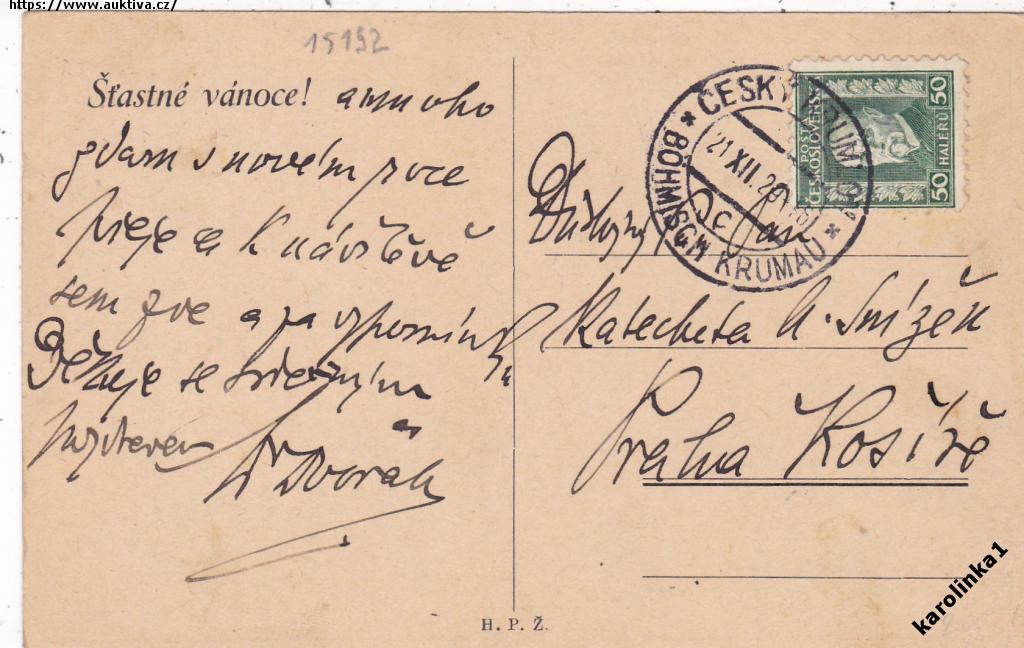 https://www.auktiva.cz/
15192
Šťastné vánoce! a mnoho
zdaru v novém roce
přeje a k návštěvě
sem zve a za vzpomínku
Děkuje se srdečným
pozdravem
Dvořák
ČESKÝ KRUMLOV
BÖHMISCH KRUMAU
21.XII.26
POŠTA
ČESKOSLOVENSKÁ
50 HALÉŘŮ 50
Důstojný pan
Katecheta A. Snížek
Praha Košíře
H. P. Ž.
karolinka1